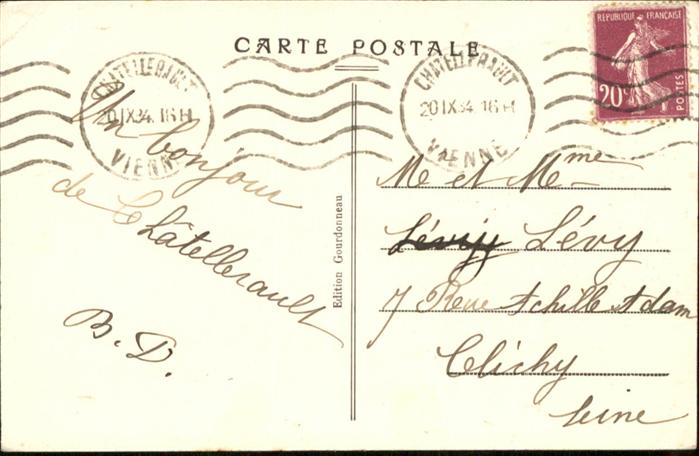 CARTE POSTALE
RÉPUBLIQUE FRANÇAISE
20c
POSTES
CHATELLERAULT
20 IX 34. 16 H
VIENNE
CHATELLERAULT
20 IX 34. 16 H
VIENNE
Un bonjour
de Châtellerault
B. D.
Edition Gourdonneau
M et Mme
Lévy Lévy
7 Rue Achille Adam
Clichy
Seine